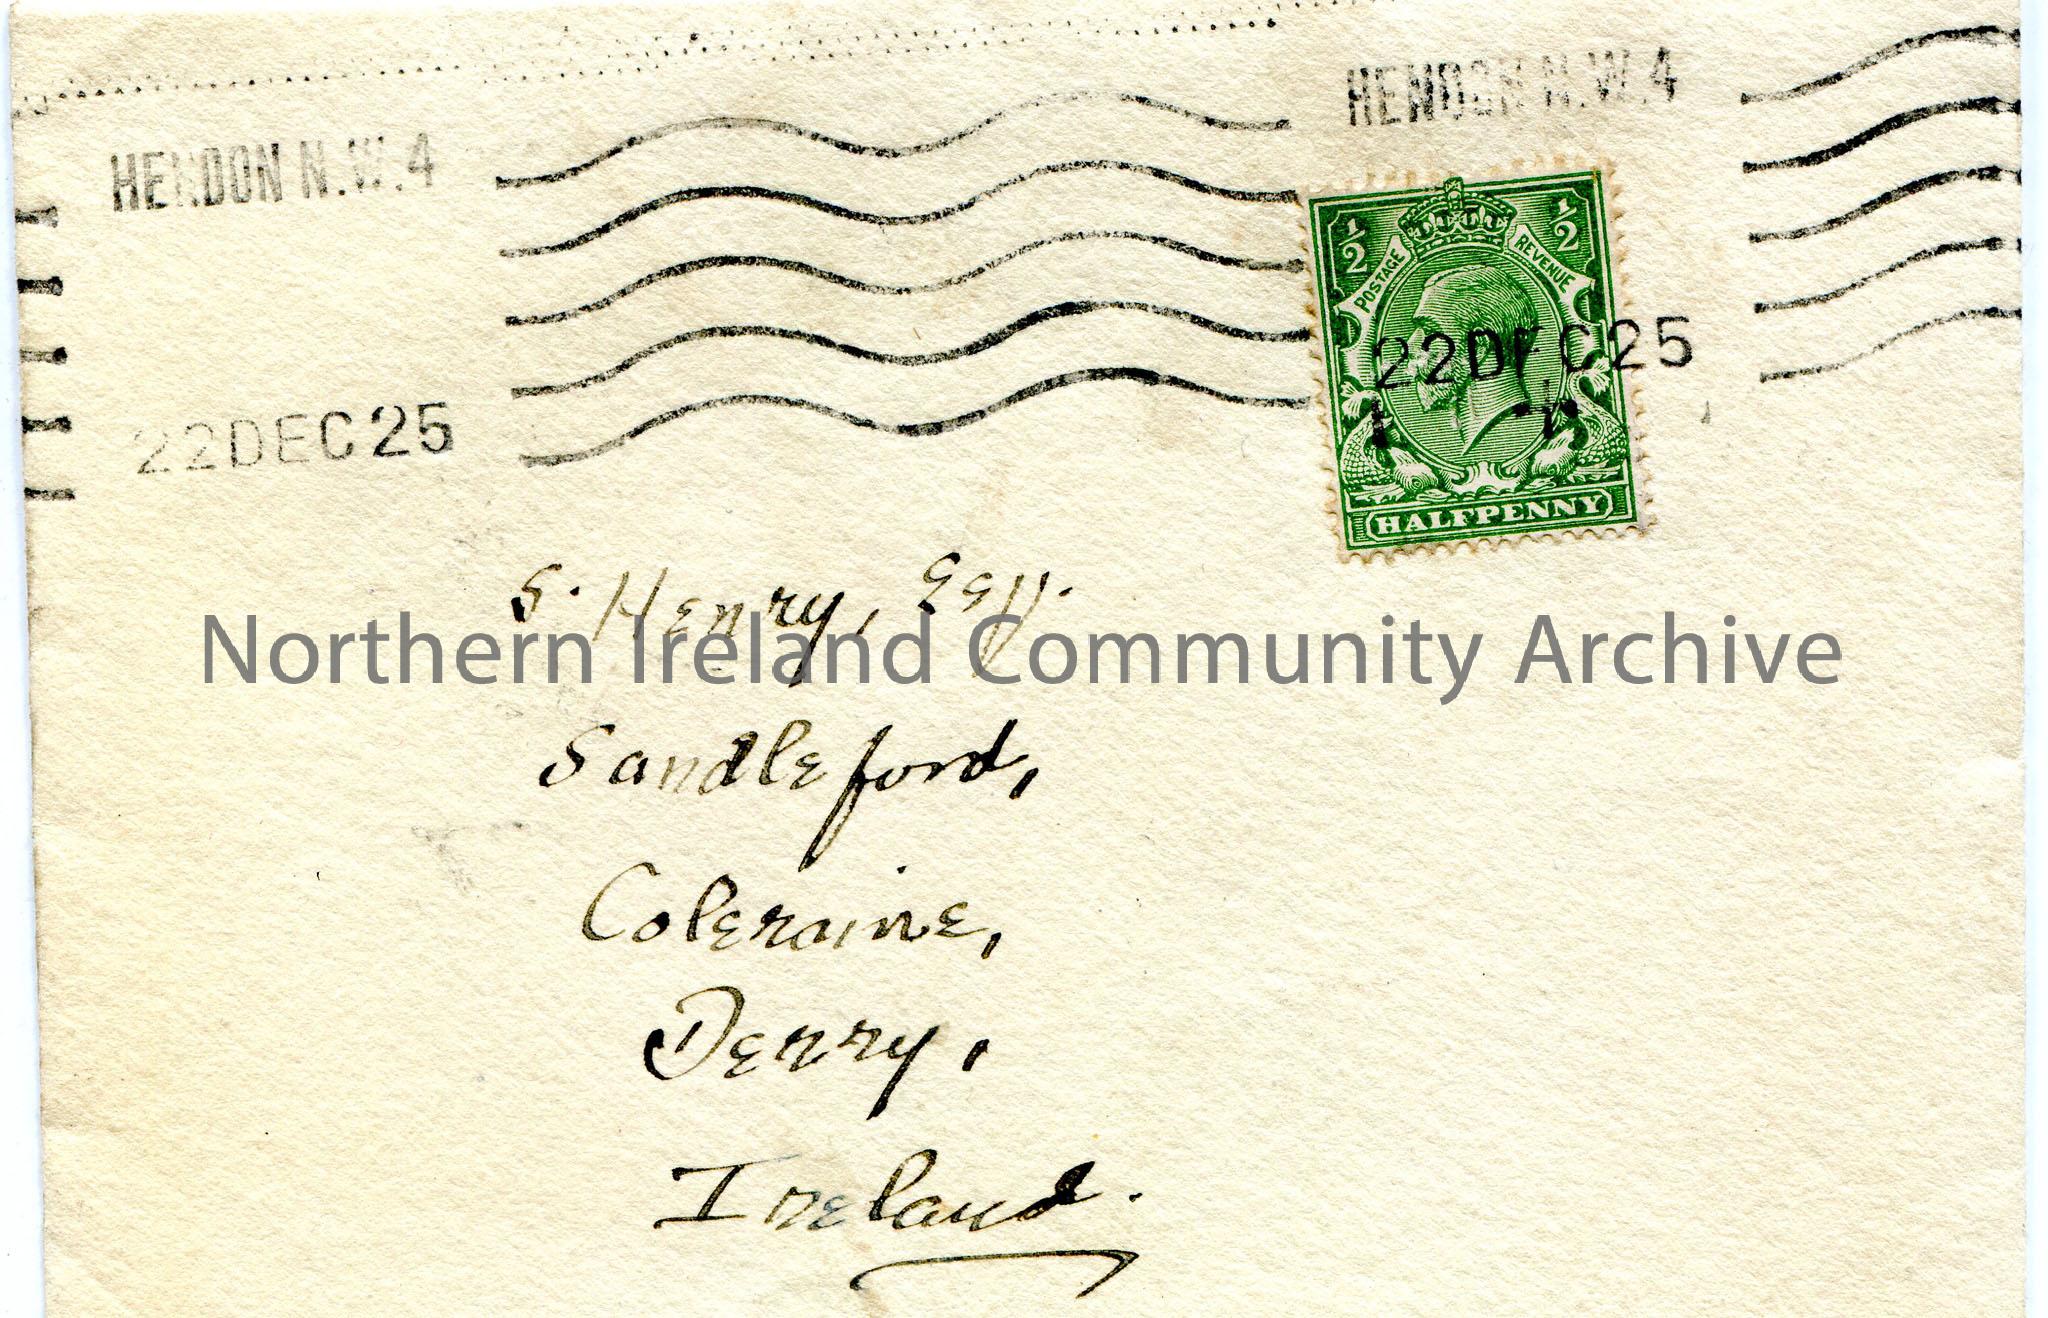 HENDON N.W.4
HENDON N.W.4
22DEC25
1/2
1/2
POSTAGE
REVENUE
22DEC25
HALFPENNY
S. Henry, Esq.
Northern Ireland Community Archive
Sandleford,
Coleraine,
Derry,
Ireland.